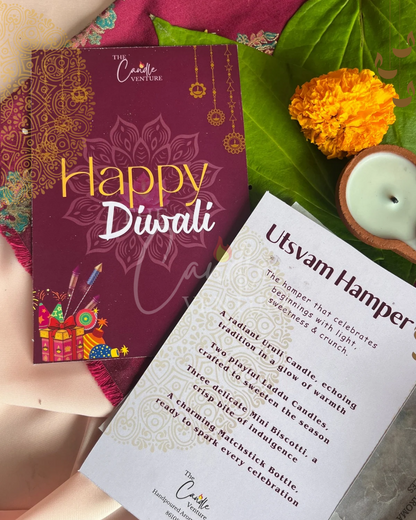 THE
Candle
VENTURE
Happy
Diwali
Utsvam Hamper
The hamper that celebrates
beginnings with light,
sweetness & crunch.
A radiant Uruli Candle, echoing
tradition in a glow of warmth
Two playful Ladu Candles,
crafted to sweeten the season
Three delicate Mini Biscotti, a
crisp bite of indulgence
A charming Matchstick Bottle,
ready to spark every celebration
The
Candle
Venture
Handpoured